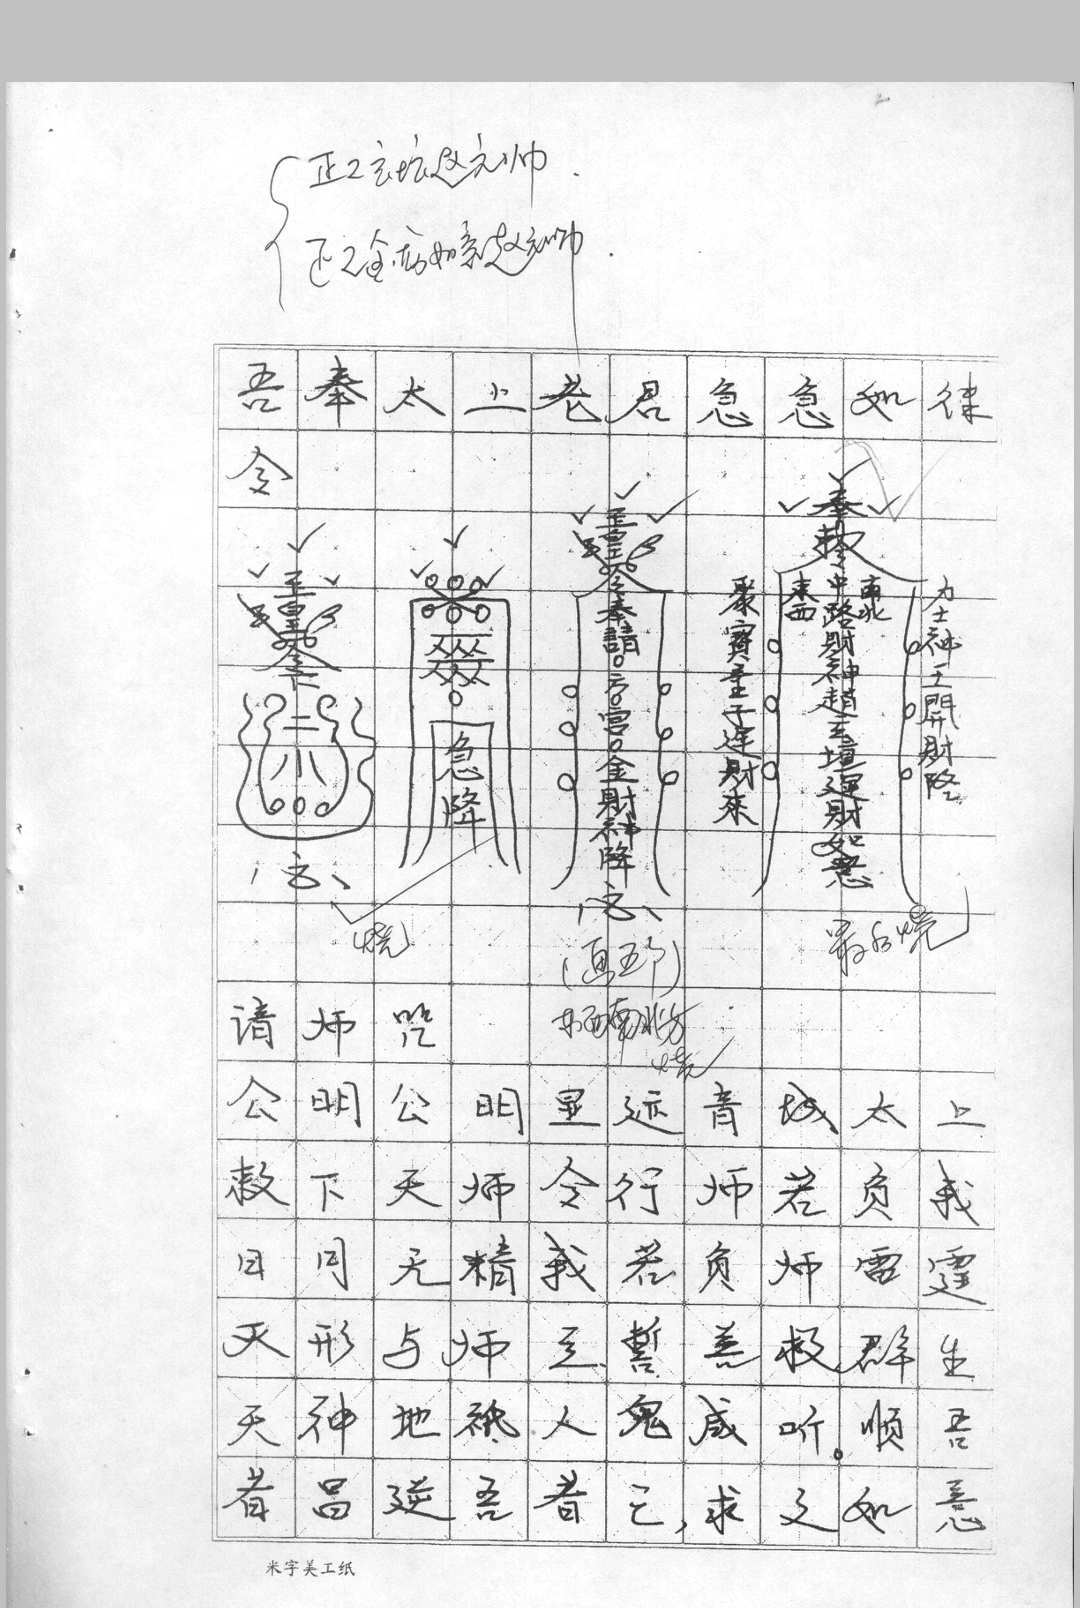 正乙玄坛赵元帅
正乙金龙如意赵元帅
吾奉太上老君急急如律
令
玉皇
急降
玉皇令奉請方宮金財神降
聚寶童子運財來
奉敕令中路財神趙玄壇運財如意
東西
南北
力士神王開財隆
烧
(画五个)
东西南北方
烧
最后烧
请师咒
公明公明显迹青城太上
敕下天师令行师若负我
日月无精我若负师雷霆
灭形与师立誓善救群生
天神地祇人鬼咸听。顺吾
者昌逆吾者亡,求之如意
米字美工纸